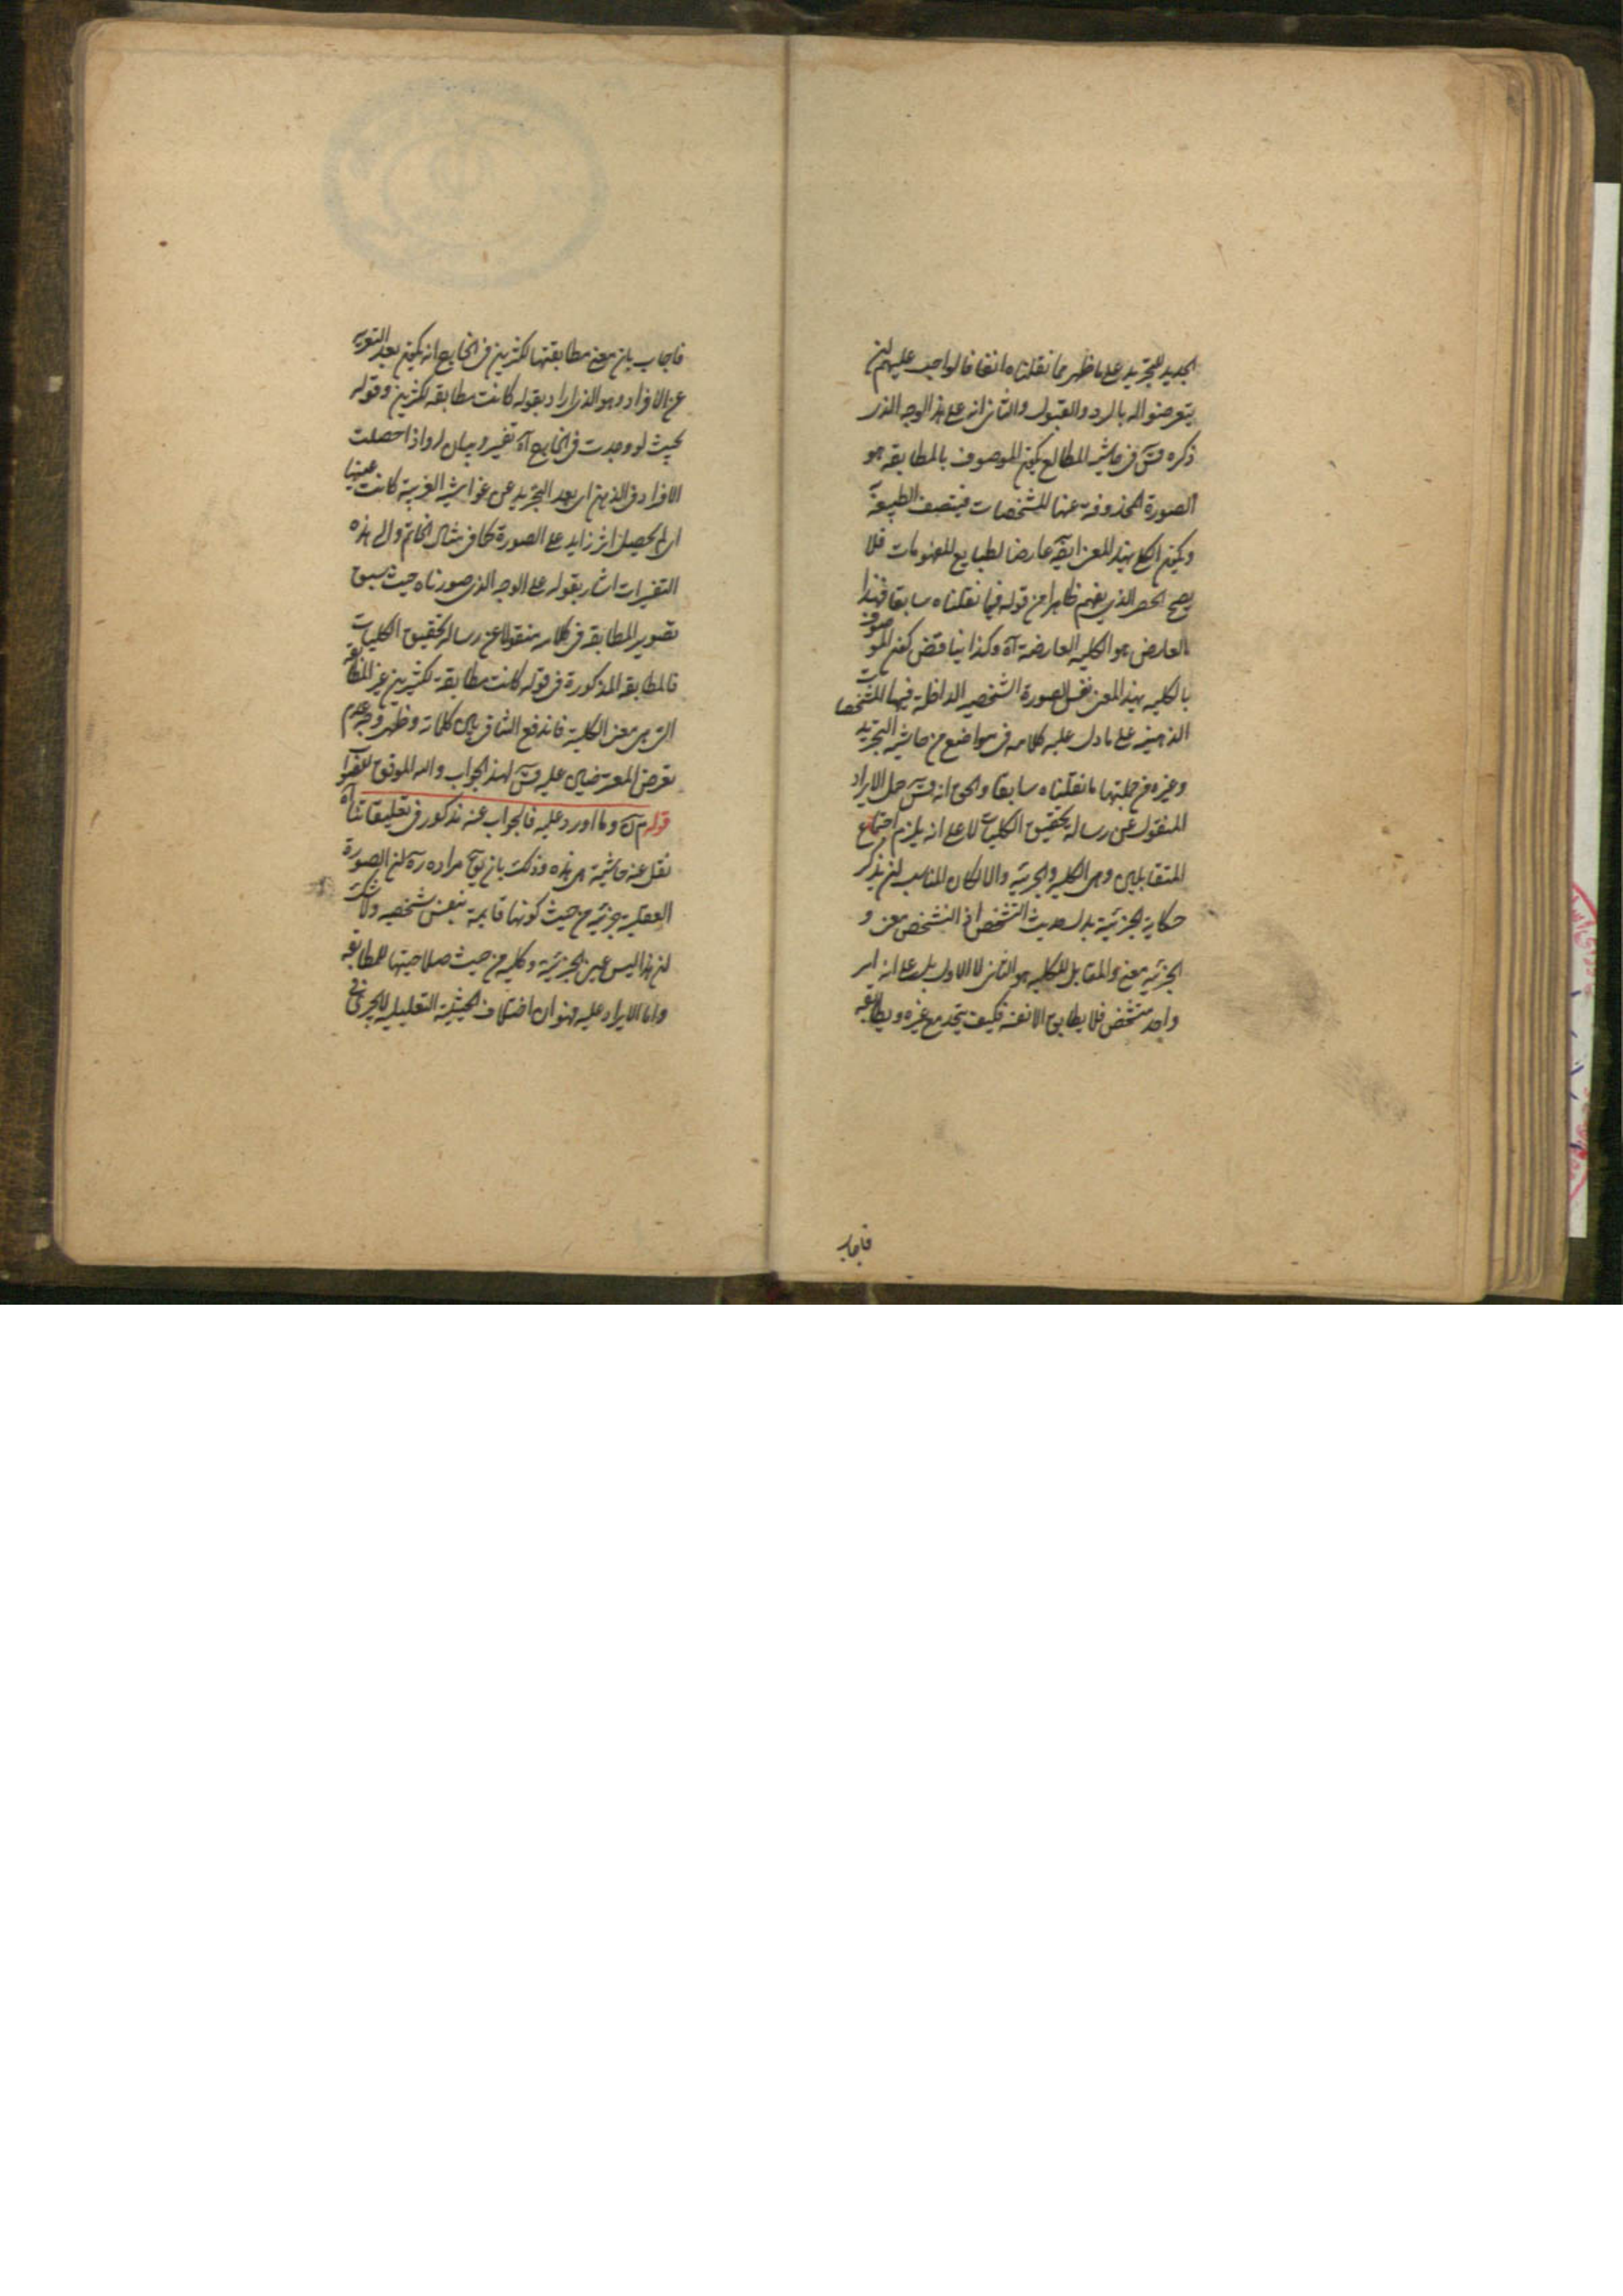 الجديد للتجريد على ما ظهر مما نقلناه انفا فالواجب عليهم لن
يتعرضوا له بالرد والقبول والثاني انه على هذا الوجه الذي
ذكره قس في حاشية المطالع يكون الموصوف بالمطابقة هو
الصورة المحذوفة عنها المشخصات فيتصف الطبيعة
ويكون الكلي بهذا المعنى ايضا عارضا لطبايع المفهومات فلا
يصح الحصر الذي يفهم ظاهرا من قوله فيما نقلناه سابقا فهذا
العارض هو الكلية العارضة آه وكذا يناقض كون الموصوف
بالكلية بهذا المعنى نفس الصورة الشخصية الداخلة فيها المشخصات
الذهنية على ما دل عليه كلامه في مواضع من حاشية التجريد
وغيره من جملتها ما نقلناه سابقا والحق انه قس حمل الايراد
المنقول عن رسالة تحقيق الكليات لا على انه يلزم اجتماع
المتقابلين وهي الكلية والجزئية والا لكان المناسب لن يذكر
حكاية الجزئية بدل حديث التشخص اذ التشخص معنى و
الجزئية معنى والمقابل للكلية هو الثاني لا الاول بل على انه امر
واحد متشخص فلا يطابق الا نفسه فكيف يتحد مع غيره ويطابقه
فاجاب
فاجاب بان معنى مطابقتها لكثيرين في الخارج انه يكون بعد التعرية
عن الافراد وهو الذي اراد بقوله كانت مطابقة لكثيرين وقوله
بحيث لو وجدت في الخارج آه تفسير وبيان له واذا حصلت
الافراد في الذهن اي بعد التجريد عن غواشيه الغريبة كانت عينها
اي لم يحصل اثر زايد على الصورة كما في مثال الخاتم والى هذه
التفسيرات اشار بقوله على الوجه الذي صورناه حيث سبق
تصوير المطابقة في كلامه منقولا عن رسالة تحقيق الكليات
فالمطابقة المذكورة في قوله كانت مطابقة لكثيرين غير المطابقة
التي هي معنى الكلية فاندفع التنافي بين كلماته وظهر وجه عدم
تعرض المعترضين عليه قس لهذا الجواب والله الموفق للصواب
قوله وما اورد عليه فالجواب عنه مذكور في تعليقاتنا آه
نقل عنه حاشية هي هذه وذلك بان يق مراده ره لن الصورة
العقلية جزئية من حيث كونها قايمة بنفس شخصية ولا شك
لن هذا ليس عين الجزئية وكلية من حيث صلاحيتها للمطابقة
واما الايراد عليه فهو ان اختلاف الحيثية التعليلية لا يجزئ في